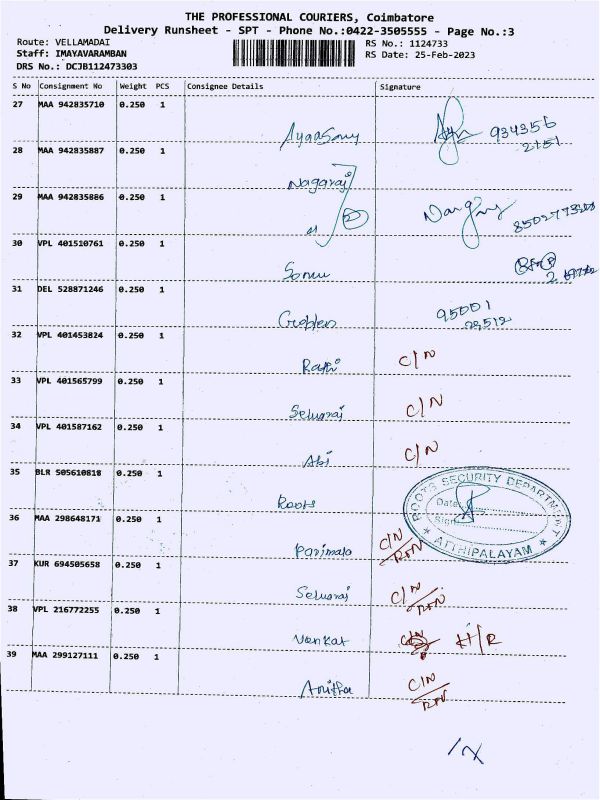 THE PROFESSIONAL COURIERS, Coimbatore
Delivery Runsheet - SPT - Phone No.:0422-3505555 - Page No.:3
Route: VELLAMADAI RS No.: 1124733
Staff: IMAYAVARAMBAN RS Date: 25-Feb-2023
DRS No.: DCJB112473303
S No Consignment No Weight PCS Consignee Details Signature
27 MAA 942835710 0.250 1
934356
2151
28 MAA 942835887 0.250 1
Nagaraj
29 MAA 942835886 0.250 1
2
30 VPL 401510761 0.250 1
Sonu
31 DEL 528871246 0.250 1
95001
32 VPL 401453824 0.250 1
C/N
33 VPL 401565799 0.250 1
Selvaraj C/N
34 VPL 401587162 0.250 1
Abi C/N
35 BLR 505610818 0.250 1
Roots
ROOTS SECURITY DEPARTMENT
Date:
Sign:
ATHIPALAYAM
36 MAA 298648171 0.250 1
Parimala C/N
37 KUR 694505658 0.250 1
Selvaraj C/N
38 VPL 216772255 0.250 1
Venkat H/R
39 MAA 299127111 0.250 1
C/N